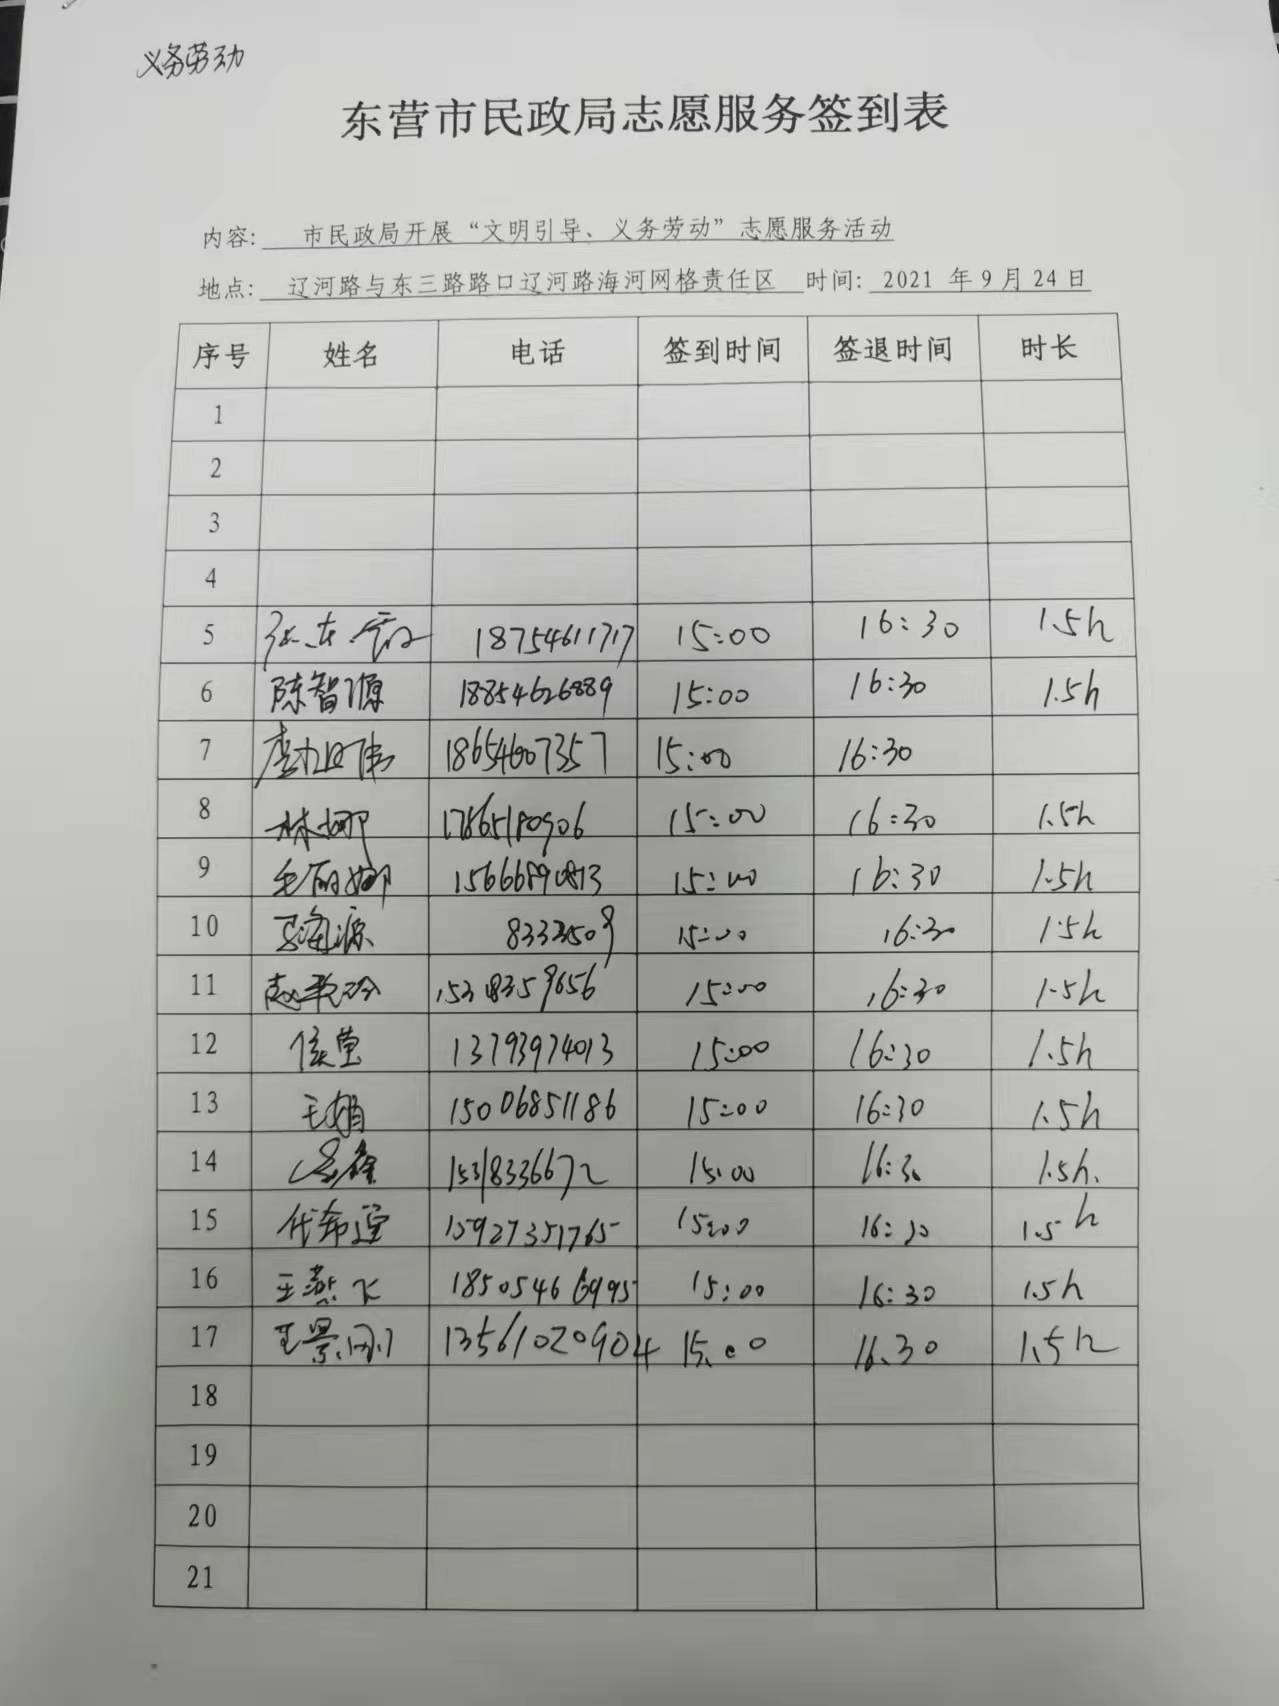 义务劳动
东营市民政局志愿服务签到表
内容: 市民政局开展“文明引导、义务劳动”志愿服务活动
地点: 辽河路与东三路路口辽河路海河网格责任区 时间: 2021 年 9 月 24 日
序号 姓名 电话 签到时间 签退时间 时长
1
2
3
4
5 18754611717 15:00 16:30 1.5h
6 陈智源 18854626889 15:00 16:30 1.5h
7 18654607357 15:00 16:30
8 林娜 17865180906 15:00 16:30 1.5h
9 毛丽娜 15666890813 15:00 16:30 1.5h
10 马海源 15:00 16:30 1.5h
11 15318359656 15:00 16:30 1.5h
12 侯莹 13793974013 15:00 16:30 1.5h
13 王娟 15006851186 15:00 16:30 1.5h
14 15318336672 15:00 16:30 1.5h.
15 代希 15927351765 15:00 16:30 1.5h
16 王燕飞 18505466995 15:00 16:30 1.5h
17 王景刚 13561020904 15.00 16.30 1.5h
18
19
20
21